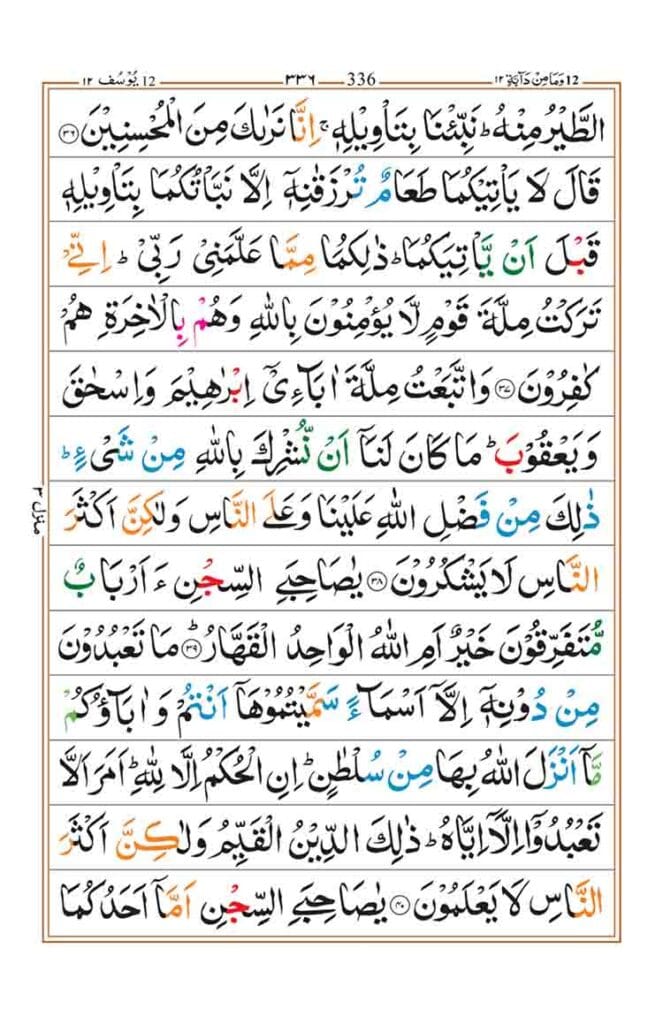 وَمَا مِنْ دَآبَّةٍ ١٢ 12 336 ٣٣٦ يُوْسُف ١٢ 12
الطَّيْرُ مِنْهُ ؕ نَبِّئْنَا بِتَاْوِيْلِهٖ ۚ اِنَّا نَرٰىكَ مِنَ الْمُحْسِنِيْنَ ﴿٣٦﴾
قَالَ لَا يَاْتِيْكُمَا طَعَامٌ تُرْزَقٰنِهٖۤ اِلَّا نَبَّاْتُكُمَا بِتَاْوِيْلِهٖ
قَبْلَ اَنْ يَّاْتِيَكُمَا ؕ ذٰلِكُمَا مِمَّا عَلَّمَنِيْ رَبِّيْ ؕ اِنِّيْ
تَرَكْتُ مِلَّةَ قَوْمٍ لَّا يُؤْمِنُوْنَ بِاللّٰهِ وَهُمْ بِالْاٰخِرَةِ هُمْ
كٰفِرُوْنَ ﴿٣٧﴾ وَاتَّبَعْتُ مِلَّةَ اٰبَآءِيْۤ اِبْرٰهِيْمَ وَاِسْحٰقَ
وَيَعْقُوْبَ ؕ مَا كَانَ لَنَاۤ اَنْ نُّشْرِكَ بِاللّٰهِ مِنْ شَيْءٍ ؕ
ذٰلِكَ مِنْ فَضْلِ اللّٰهِ عَلَيْنَا وَعَلَى النَّاسِ وَلٰكِنَّ اَكْثَرَ
النَّاسِ لَا يَشْكُرُوْنَ ﴿٣٨﴾ يٰصَاحِبَيِ السِّجْنِ ءَاَرْبَابٌ
مُّتَفَرِّقُوْنَ خَيْرٌ اَمِ اللّٰهُ الْوَاحِدُ الْقَهَّارُ ﴿٣٩﴾ؕ مَا تَعْبُدُوْنَ
مِنْ دُوْنِهٖۤ اِلَّاۤ اَسْمَآءً سَمَّيْتُمُوْهَاۤ اَنْتُمْ وَاٰبَآؤُكُمْ
مَّاۤ اَنْزَلَ اللّٰهُ بِهَا مِنْ سُلْطٰنٍ ؕ اِنِ الْحُكْمُ اِلَّا لِلّٰهِ ؕ اَمَرَ اَلَّا
تَعْبُدُوْۤا اِلَّاۤ اِيَّاهُ ؕ ذٰلِكَ الدِّيْنُ الْقَيِّمُ وَلٰكِنَّ اَكْثَرَ
النَّاسِ لَا يَعْلَمُوْنَ ﴿٤٠﴾ يٰصَاحِبَيِ السِّجْنِ اَمَّاۤ اَحَدُكُمَا
منزل ٣